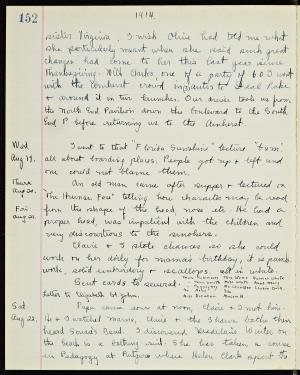 152
1914.
sister Virginia. I wish Olive had told me what
she particularly meant when she said such great
changes had come to her this last year since
Thanksgiving. Will Clarks, one of a party of 603 went
with the Amherst crowd to Deal Lake
& around it in two launches. Our cruise took us from
the North End Pavilion down the boulevard to the South
End P. before returning us to the Amherst.
Wed.
Aug 19.
I went to that "Florida Sunshine" lecture
all about boarding places. People got up & left and
one could not blame them.
Thurs
Aug 20.
An old man came after supper & lectured on
"The Human Face" telling how character may be read
Fri
Aug 21.
from the shape of the head, nose etc. He had a
proper head, was impatient with the children and
very discourteous to the smokers.
Claire & I stole chances so she could
work on her doily for mama's birthday, it is
work, solid embroidery & scallops, all in white.
Sent cards to several.
Letter to Elizabeth St. John.
Sat.
Aug 22.
Papa came down at noon, Claire & I met him.
He & I watched mama, Claire & the Shaws bathe then
heard Band. I discovered Winter on
the beach in a bathing suit. She has taken a course
in Pedagogy at Rutgers where Helen Clark spent to